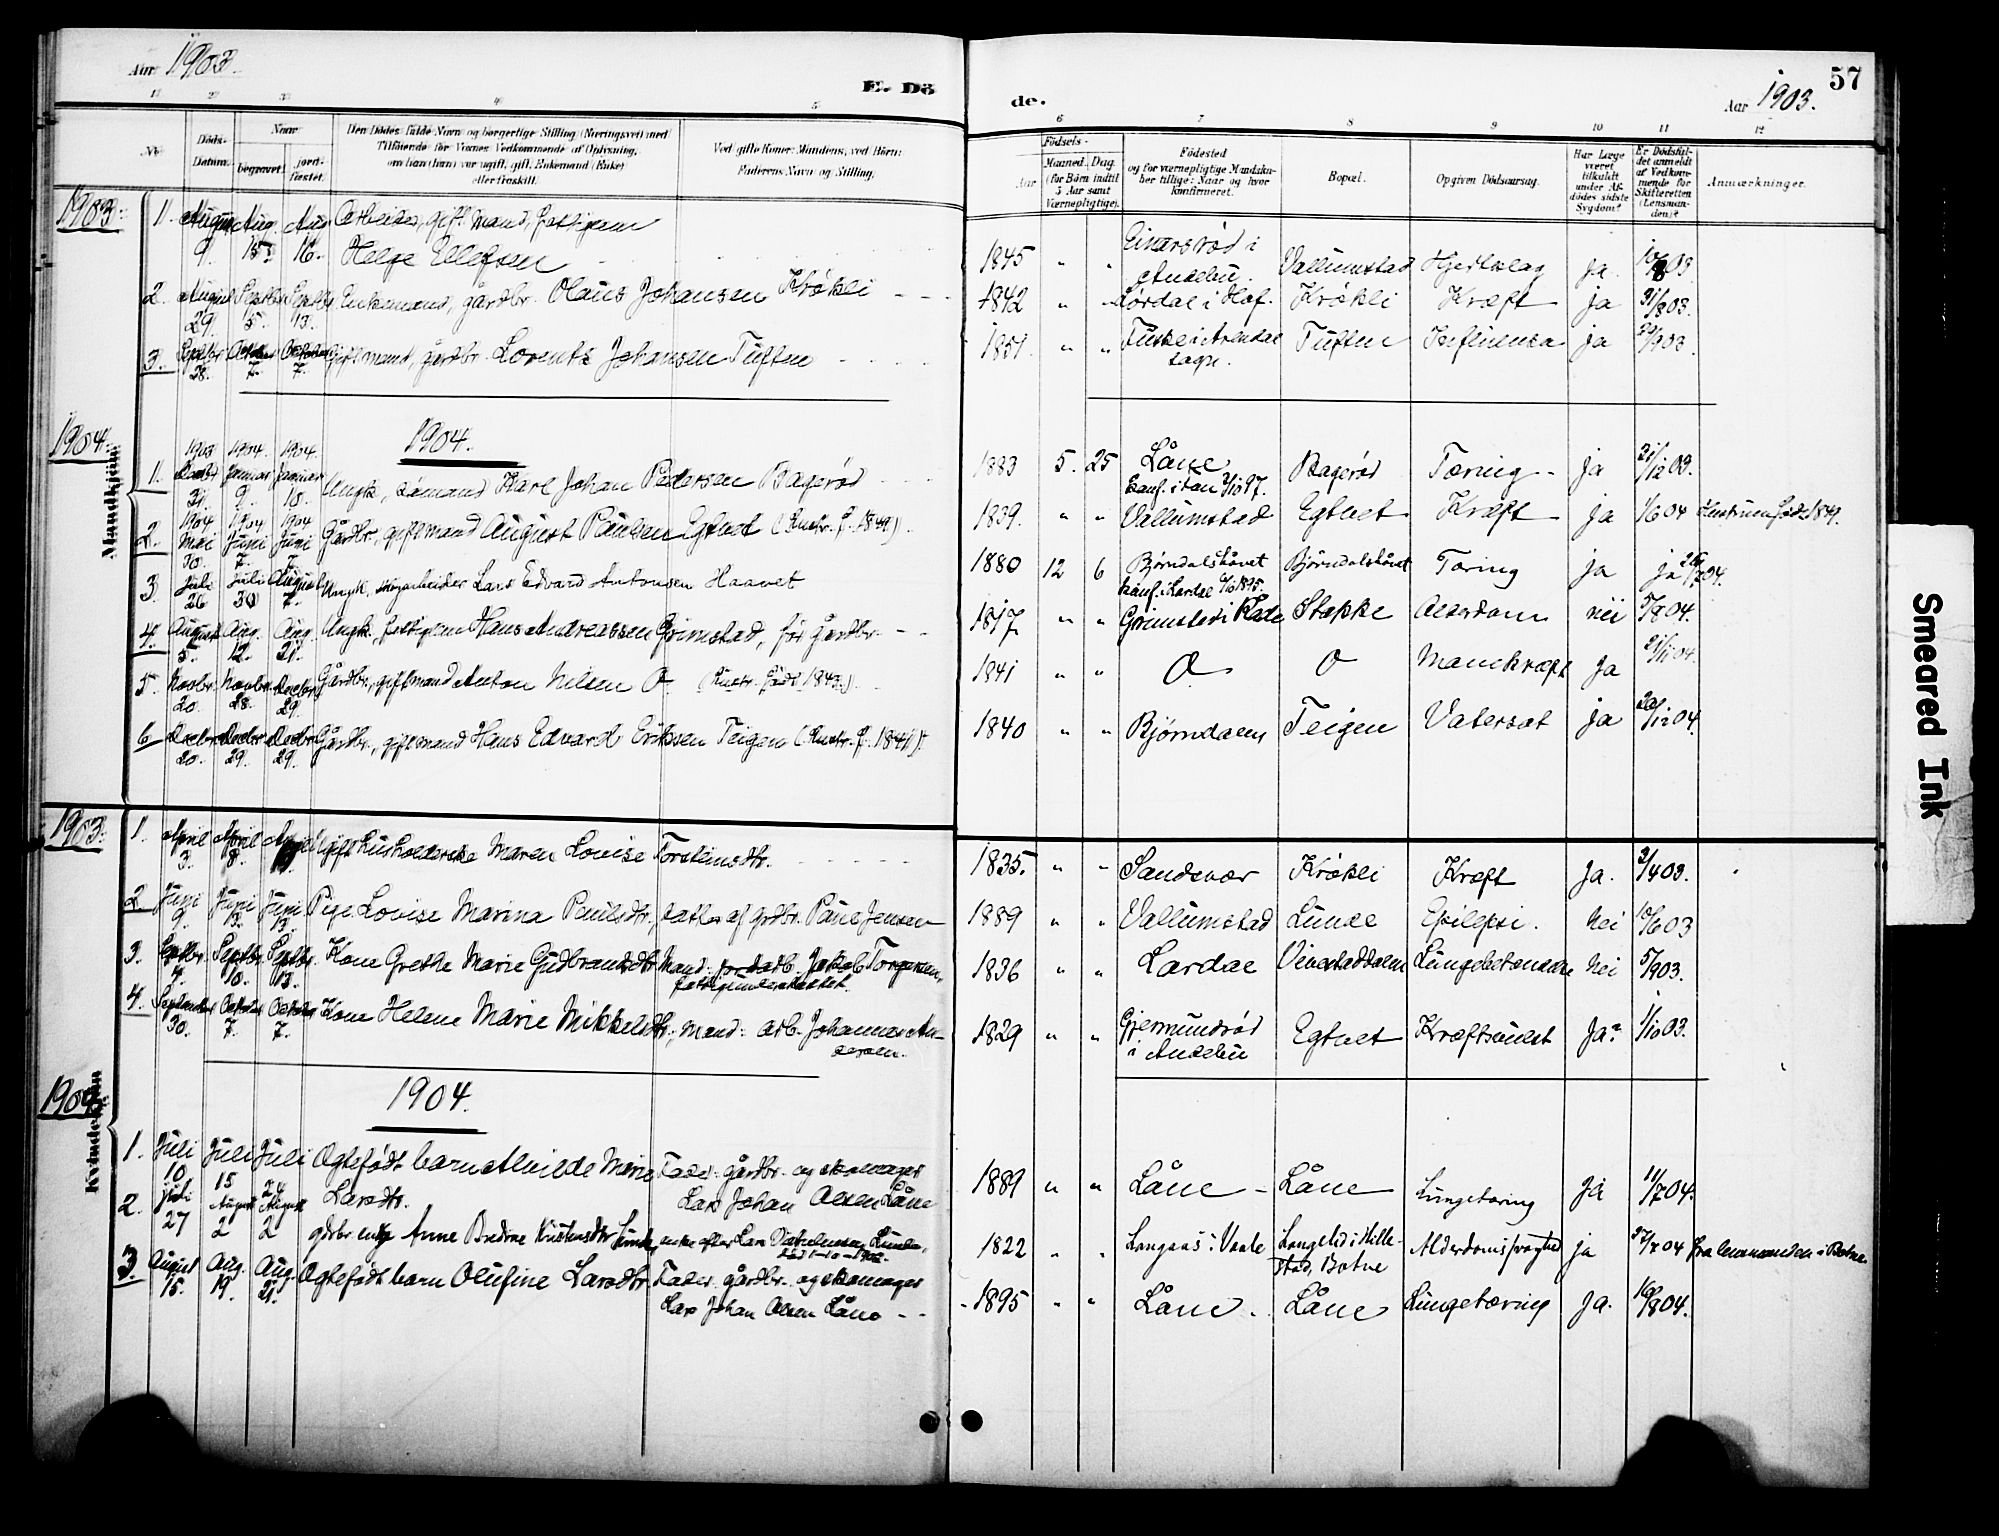 Aar 1903.
E. Dö
1 2 3 4 5
No
Döds-
Datum.
Naar
begravet.
jord-
fæstet.
Den Dödes fulde Navn og borgerlige Stilling (Næringsvei) med
Tilföiende for Voxnes Vedkommende af Oplysning,
om han (hun) var ugift, gift, Enkemand (Enke)
eller fraskilt.
Ved gifte Koner: Mandens, ved Börn:
Faderens Navn og Stilling.
de.
Aar 1903.
57
6 7 8 9 10 11 12
Födsels-
Aar
Maaned. Dag.
(for Börn indtil
5 Aar samt
Værnepligtige).
Födested
og for værnepligtige Mandska-
ber tillige: Naar og hvor
konfirmeret.
Bopæl.
Opgiven Dödsaarsag.
Har Læge
været
tilkaldt
under Af-
dödes sidste
Sygdom?
Er Dödsfal-
det anmeldt
af Vedkom-
mende for
Skifteretten
(Lensman-
den)?
Anmærkninger.
1903:
Mandkjön:
1. August 9. Aug. 15. Aug 16. Arbeider, gift mand, fattigem
Helge Ellefsen 1845 " " Einarsrød i Andebu. Vallumstad Hjerteslag ja. 10/8 03
2. August 29. Septbr 5. Septbr 13. Enkemand, gårdbr. Olaus Johansen Krøkli 1842 " " Lørdal i Hof. Krøkli Kræft ja 31/8 03.
3. Septbr 28. October 7. October 7. Gift mand, gårdbr. Lorents Johansen Tuften 1851 " " Tuften Influensa ja 29/9 03.
1904:
1904.
1. 1903 Decbr 31. 1904. Januar 9. 1904. Januar 10. Ungk., sømand Karl Johan Pedersen Bagerød 1883 5. 25 Låne Bagerød Tæring ja 31/12 03.
2. 1904 Mai 30. 1904 Juni 7. 1904 Juni 7. Gårdbr., gift mand August Paulsen Egtvet (Hustr. f. 1849). 1839. " " Vallumstad Egtvet Kræft ja 1/6 04 Hustruen født 1849.
3. Juli 26 Juli 30 August 7. Ungk. skogarbeider Lars Edvard Antonsen Haavet 1880 12 6 Bjørndalshåvet Konf. i Lardal 6/10 1895. Bjørndalshåvet Tæring ja ja 26/7 04.
4. August 5. Aug. 12. Aug. 21. Ungk., fattigem Hans Andreassen Grimstad, før gårdbr. 1817 " " Grimsted i Stokke Alderdom nei 5/8 04.
5. Novbr. 20. Novbr. 28. Decbr 29. Gårdbr., gift mand Anton Nilsen Ø. (Hustr. født 1843). 1841 " " Ø Ø Mavekræft ja 21/11 04.
6. Decbr. 20. Decbr 29. Decbr 29. Gårdbr., gift mand Hans Edvard Eriksen Teigen (Hustr. f. 1841). 1840 " " Bjørndalen Teigen Vatersot ja 20/12 04.
1903:
Kvindekjön
1. April 3. April 8. April Ugift husholderske Maren Lovise Torsteinsdtr. 1835. " " Sandsvær Krøkli Kræft ja. 3/4 03.
2 Juni 9. Juni 13. Juni 13. Pige Lovise Marina Paulsdtr., datter af grdbr. Paul Jensen 1889 " " Vallumstad Lunde Epilepsi. Nei 10/6 03
3. Septbr. 4. Septbr. 10. Septbr. 13. Kone Grethe Marie Gudbrandsdtr. Mand: Jakob Torgersen, fattigunderstøttet. 1836 " " Lardal Lungebetændelse Nei 5/9 03.
4. September 30. October 7. October 7. Kone Helene Marie Mikkelsdtr., mand: arb. Johannes Andersen. 1829 " " Gjermundrød i Andebu Egtvet Kræftsvulst Ja. 1/10 03.
1904:
1904.
1. Juli 10 Juli 15 Juli 24 Ægtefødt barn Alvilde Marie Larsdtr. Fader: gårdbr. og skomager Lars Johan Olsen Låne 1889 " " Låne Låne Lungetæring ja 11/7 04.
2. Juli 27 August 2 August 2 gdbr. enke Anne Bredine Kristensdtr Lunde, enke efter Lars Lunde, død 1822 " " Langaas i Vaale Langelid i Hillestad, Botne Alderdomssvaghed ja 27/7 04 fra lensmanden i Botne
3. August 15. Aug. 19. Aug. 21. Ægtefødt barn Olufine Larsdtr. Fader: gårdbr. og skomager Lars Johan Olsen Låne 1895 " " Låne. Låne Lungetæring Ja. 16/8 04.
Smeared Ink